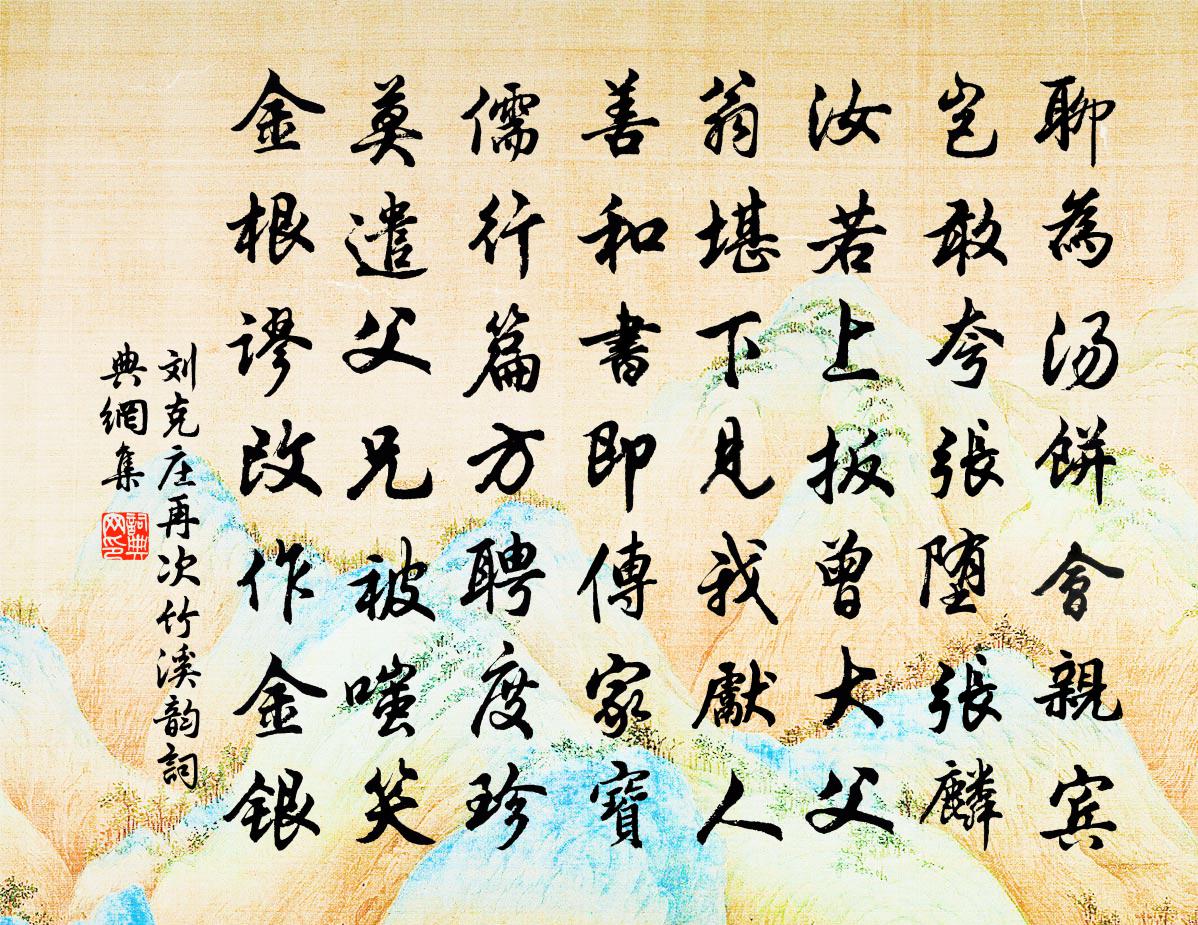 聊為湯餅會親宾
岂敢夸張堕張麟
汝若上扳曾大父
翁堪下見我獻人
善和書即傳家寶
儒行篇方聘度珍
莫遣父兄被嗤笑
金根謬改作金銀
刘克庄再次竹溪韵詞
典網集
詞典
网印